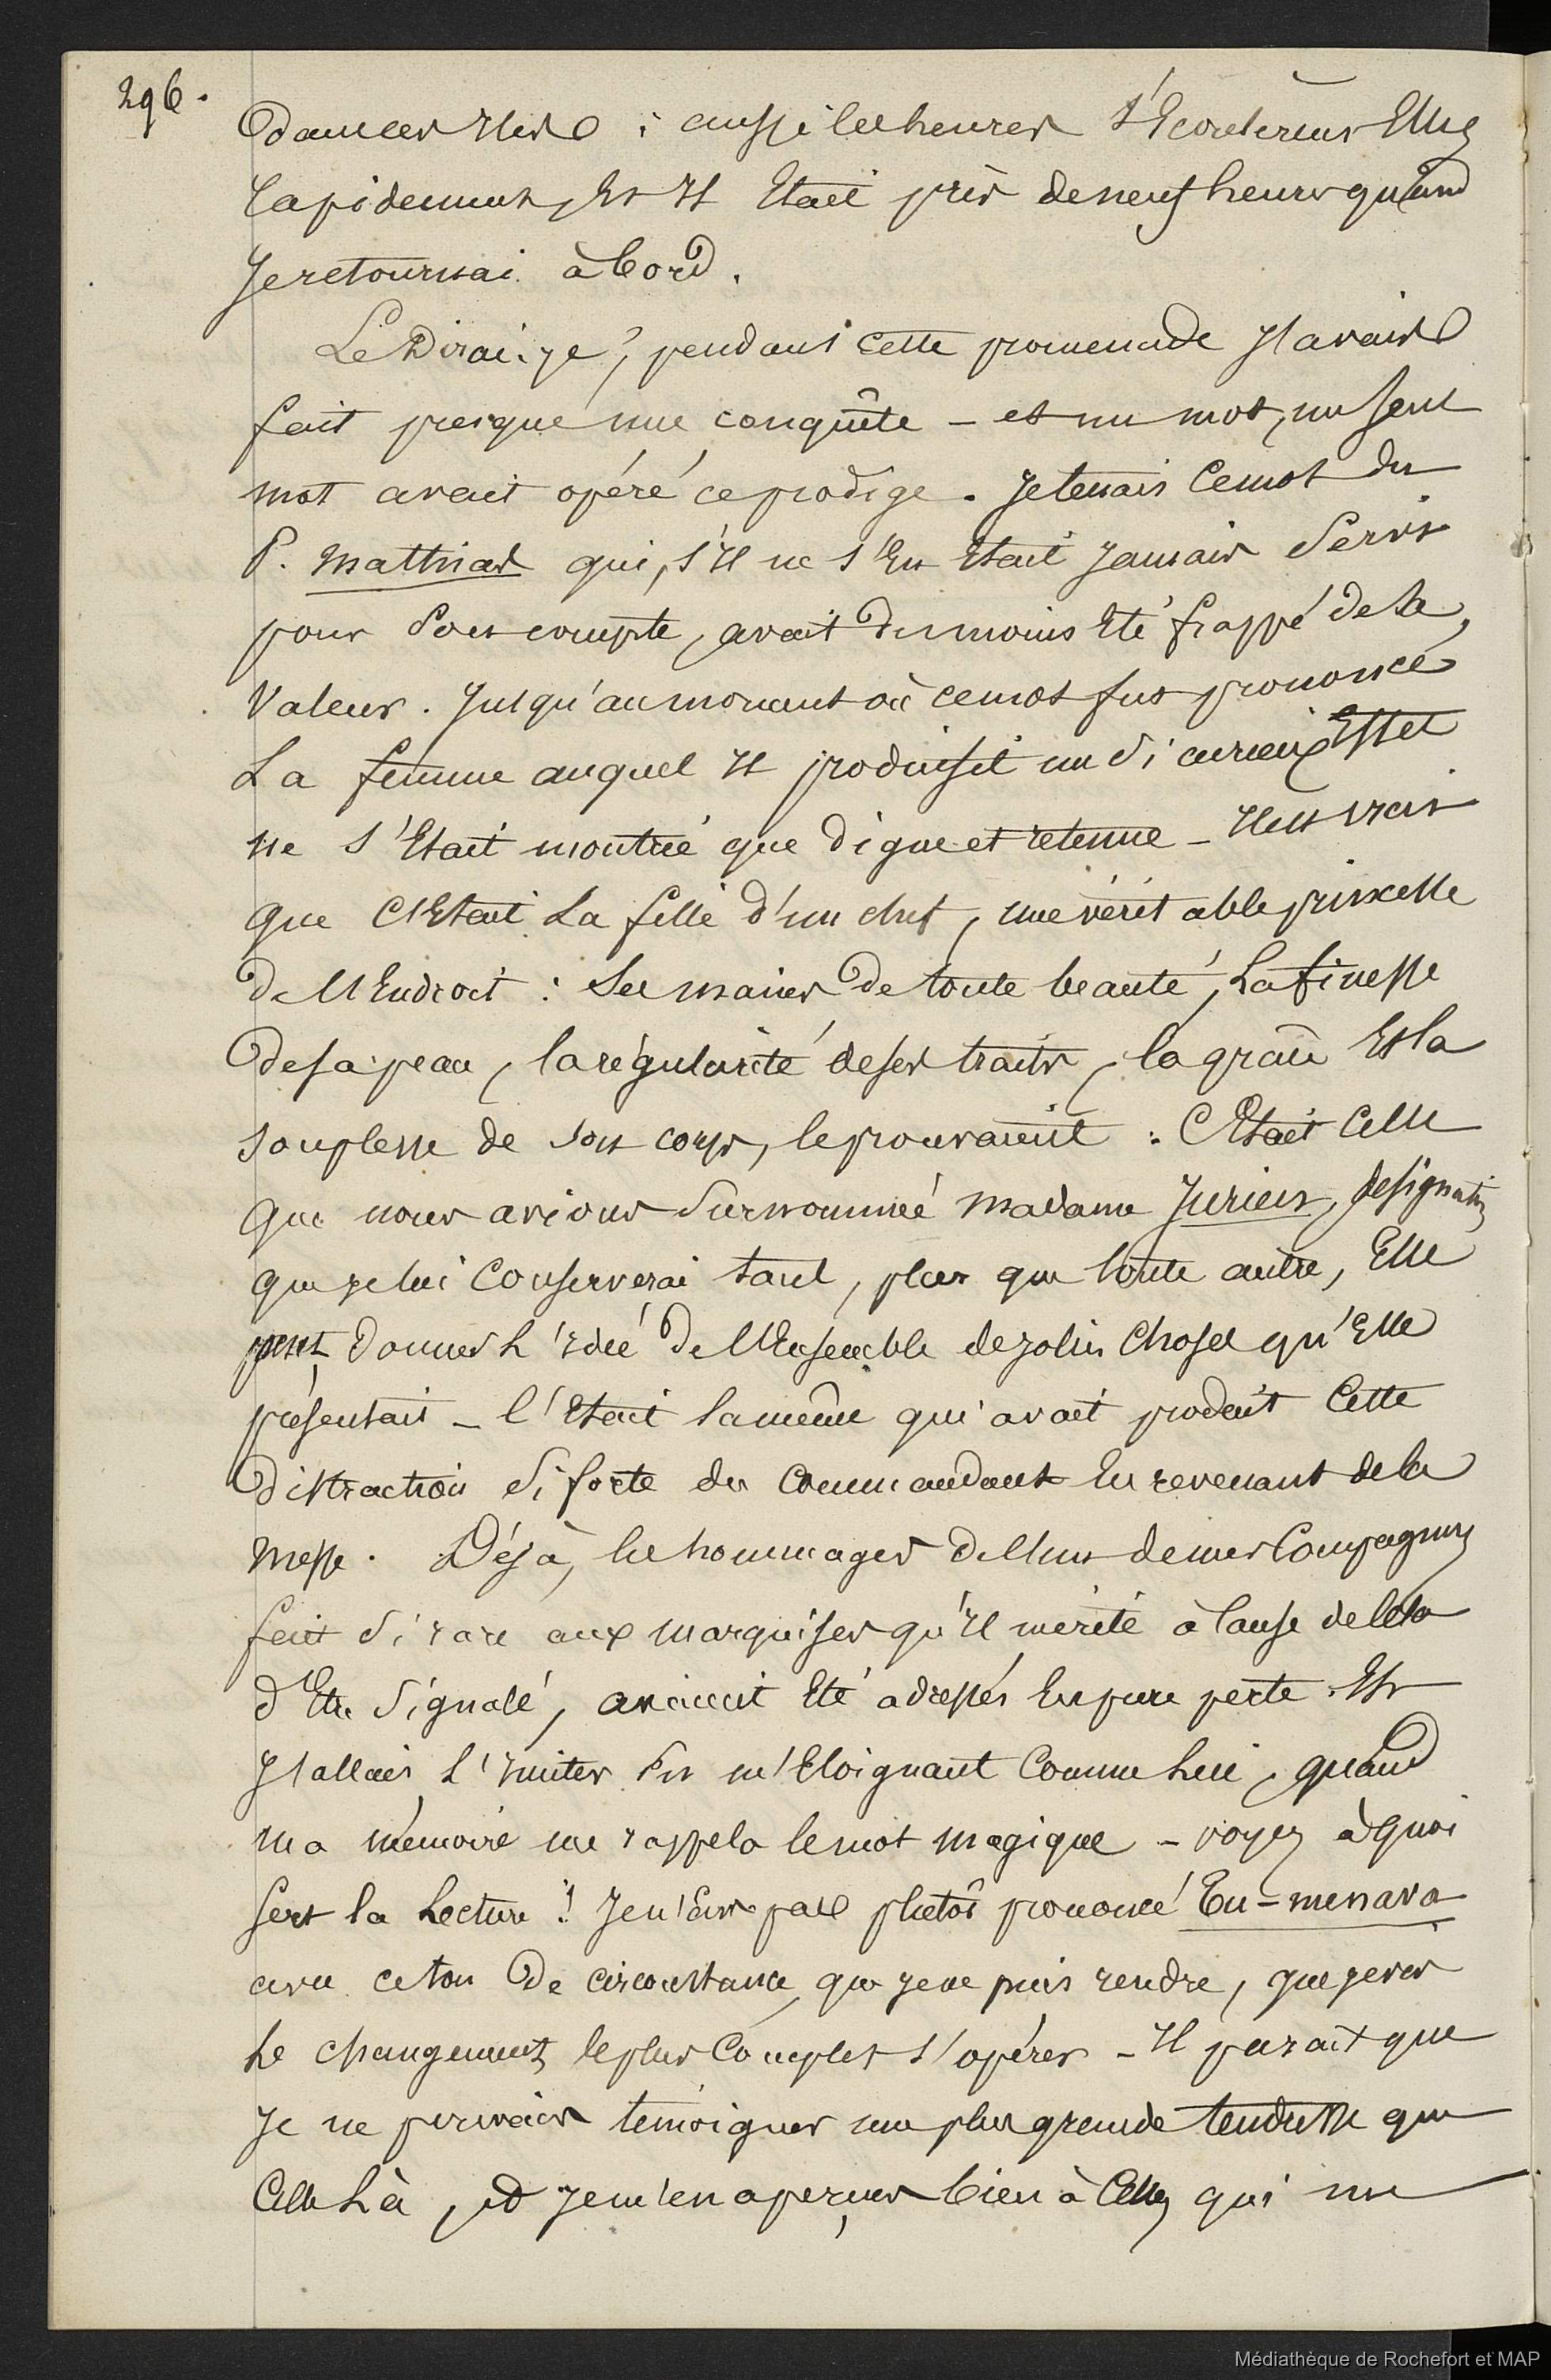 296.
dans ces Iles ; aussi les heures s'Ecoulèrent Elles
rapidement, Et Il Etait près de neuf heures quand
Je retournai à bord.
Le Dirai-je ? pendant cette promenade J'avais
fait presque une conquête - et un mot, un seul
mot avait opéré ce prodige. Je tenais ce mot du
P. Matthias qui, s'Il ne s'En Etait Jamais Servi
pour Son compte, avait du moins Eté frappé de sa
Valeur. Jusqu'au moment où ce mot fut prononcé
La femme auquel Il produisit un si curieux Effet
ne s'Etait montrée que digne et retenue - Il est vrai
que C'Etait La fille d'un chef, une véritable princesse
de l'Endroit : Ses mains de toute beauté, La finesse
de sa peau, la régularité de ses traits, la grâce Et la
souplesse de son corps, le prouvaient : C'Etait Celle
que nous avions Surnommée Madame Jurien, désignation
que Je lui Conserverai tant, plus que toute autre, Elle
peut donner L'Idée de l'Ensemble de Jolies Choses qu'Elle
présentait - C'Etait la même qui avait produit Cette
distraction Si forte du Commandant En revenant de la
Messe. Déjà, les hommages de l'un de mes Compagnons
fait Si rare aux Marquises qu'Il mérite à Cause de Cela
d'Etre Signalé, avaient Eté adressés En pure perte. Et
J'allais L'Imiter En m'Eloignant Comme Lui, quand
ma mémoire me rappela le mot magique - voyez à quoi
Sert la Lecture ! Je n'Eus pas plutôt prononcé Eu-menava
avec ce ton de circonstance que Je ne puis rendre, que Je vis
Le changement le plus Complet s'opérer - Il paraît que
Je ne pouvais témoigner une plus grande tendresse que
Celle Là, et Je m'en aperçus bien à Celle qui me
Médiathèque de Rochefort et MAP